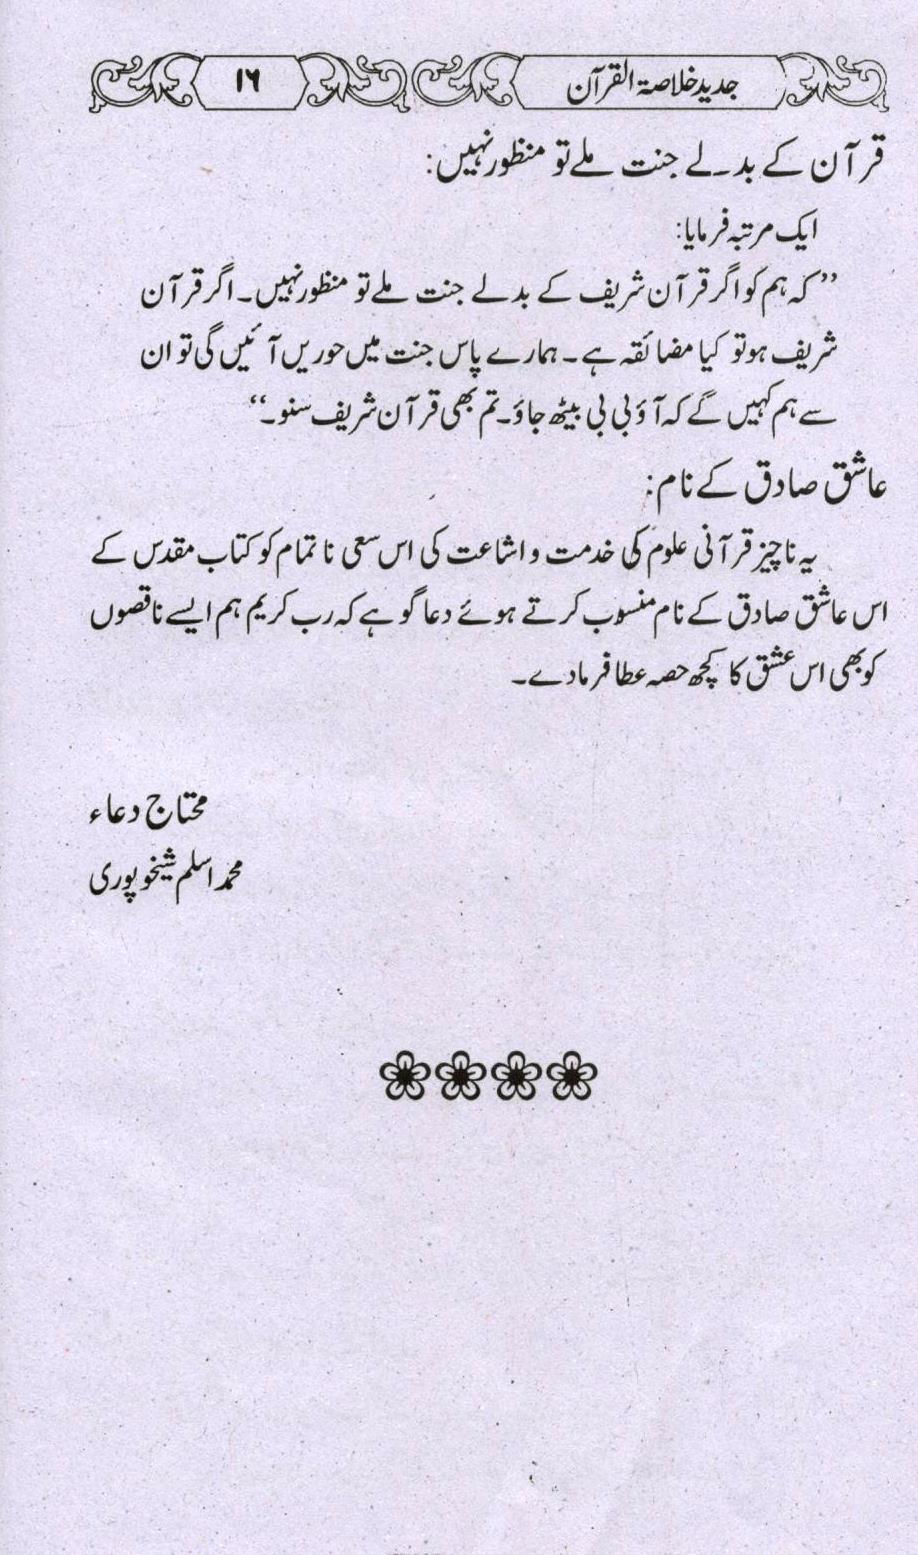 جدید خلاصۃ القرآن
۱۶
قرآن کے بدلے جنت ملے تو منظور نہیں:
ایک مرتبہ فرمایا:
”کہ ہم کو اگر قرآن شریف کے بدلے جنت ملے تو منظور نہیں۔ اگر قرآن
شریف ہو تو کیا مضائقہ ہے۔ ہمارے پاس جنت میں حوریں آئیں گی تو ان
سے ہم کہیں گے کہ آؤ بی بی بیٹھ جاؤ۔ تم بھی قرآن شریف سنو۔“
عاشق صادق کے نام:
یہ ناچیز قرآنی علوم کی خدمت و اشاعت کی اس سعی ناتمام کو کتاب مقدس کے
اس عاشق صادق کے نام منسوب کرتے ہوئے دعا گو ہے کہ رب کریم ہم ایسے ناقصوں
کو بھی اس عشق کا کچھ حصہ عطا فرما دے۔
محتاج دعاء
محمد اسلم شیخوپوری